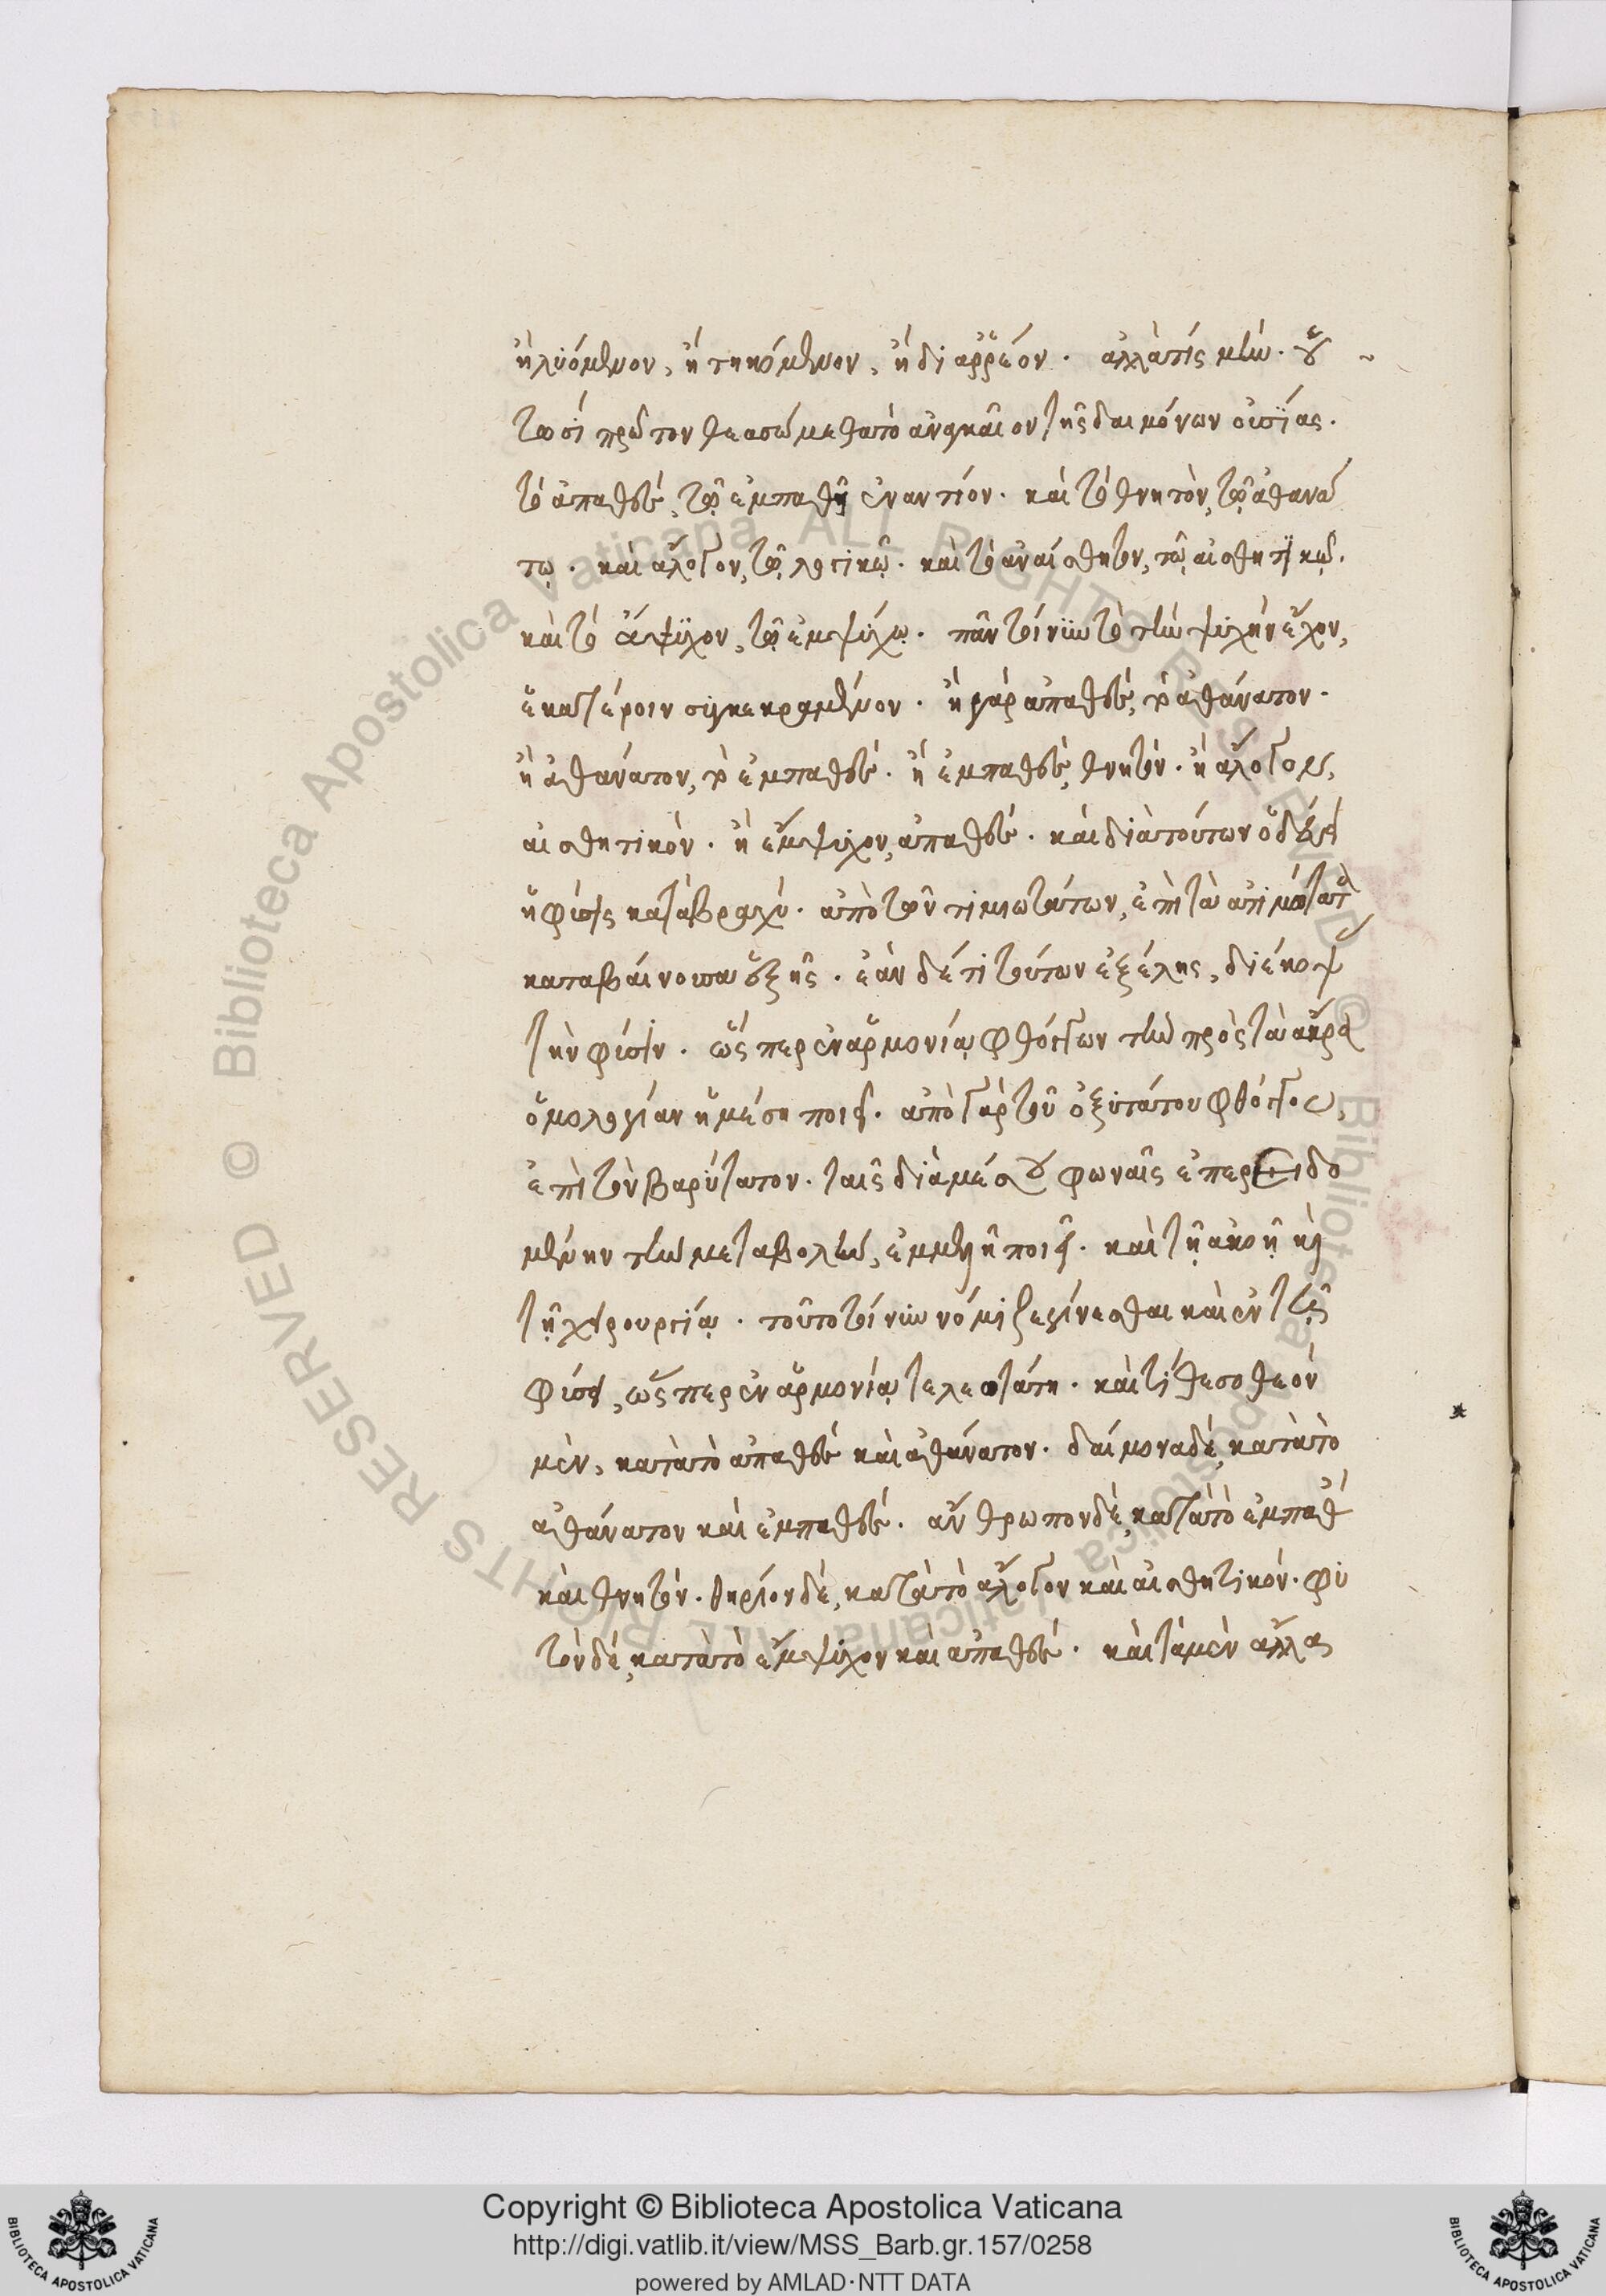 ἢ λυόμενον, ἢ τηκόμενον, ἢ διαρρέον. ἀλλὰ τίς μὴν. οὑ ~
τωσὶ πρῶτον θεασώμεθα τὸ ἀναγκαῖον τῆς δαιμόνων οὐσίας.
τὸ ἀπαθὲς, τῷ ἐμπαθῆ ἐναντίον. καὶ τὸ θνητὸν, τῷ ἀθανά
τῳ. καὶ ἄλογον, τῷ λογικῷ. καὶ τὸ ἀναίσθητον, τῷ αἰσθητικῷ.
καὶ τὸ ἄψυχον, τῷ ἐμψύχῳ. πᾶν τοίνυν τὸ τὴν ψυχὴν ἔχον,
ἑκατέροιν συγκεκραμένον. ἢ γὰρ ἀπαθὲς, καὶ ἀθάνατον.
ἢ ἀθάνατον, καὶ ἐμπαθές. ἢ ἐμπαθὲς, θνητόν. ἢ ἄλογον,
αἰσθητικόν. ἢ ἔμψυχον, ἀπαθές. καὶ διὰ τούτων ὁδεύει
ἡ φύσις κατὰ βραχύ. ἀπὸ τῶν τιμιωτάτων, ἐπὶ τὰ ἀτιμότατα
καταβαίνουσα ἑξῆς. ἐὰν δέ τι τούτων ἐξέλῃς, διέκοψας
τὴν φύσιν. ὥσπερ ἐν ἁρμονίᾳ φθόγγων τὴν πρὸς τὰ ἄκρα
ὁμολογίαν ἡ μέση ποιεῖ. ἀπὸ γὰρ τοῦ ὀξυτάτου φθόγγου,
ἐπὶ τὸν βαρύτατον. ταῖς διὰ μέσου φωναῖς ἐπερειδο
μένην τὴν μεταβολὴν, ἐμμελῆ ποιεῖ. καὶ τῇ ἀκοῇ καὶ
τῇ χειρουργίᾳ. τοῦτο τοίνυν νόμιζε γίνεσθαι καὶ ἐν τῇ
φύσει, ὥσπερ ἐν ἁρμονίᾳ τελεωτάτῃ. καὶ τίθεσο θεὸν *
μὲν, κατὰ τὸ ἀπαθὲς καὶ ἀθάνατον. δαίμονα δὲ, κατὰ τὸ
ἀθάνατον καὶ ἐμπαθές. ἄνθρωπον δὲ, κατὰ τὸ ἐμπαθὲς
καὶ θνητόν. θηρίον δὲ, κατὰ τὸ ἄλογον καὶ αἰσθητικόν. φυ
τὸν δὲ, κατὰ τὸ ἔμψυχον καὶ ἀπαθές. καὶ τὰ μὲν ἄλλα
Copyright © Biblioteca Apostolica Vaticana
http://digi.vatlib.it/view/MSS_Barb.gr.157/0258
powered by AMLAD·NTT DATA
BIBLIOTECA APOSTOLICA VATICANA
BIBLIOTECA APOSTOLICA VATICANA
© Biblioteca Apostolica Vaticana ALL RIGHTS RESERVED © Biblioteca Apostolica Vaticana ALL RIGHTS RESERVED